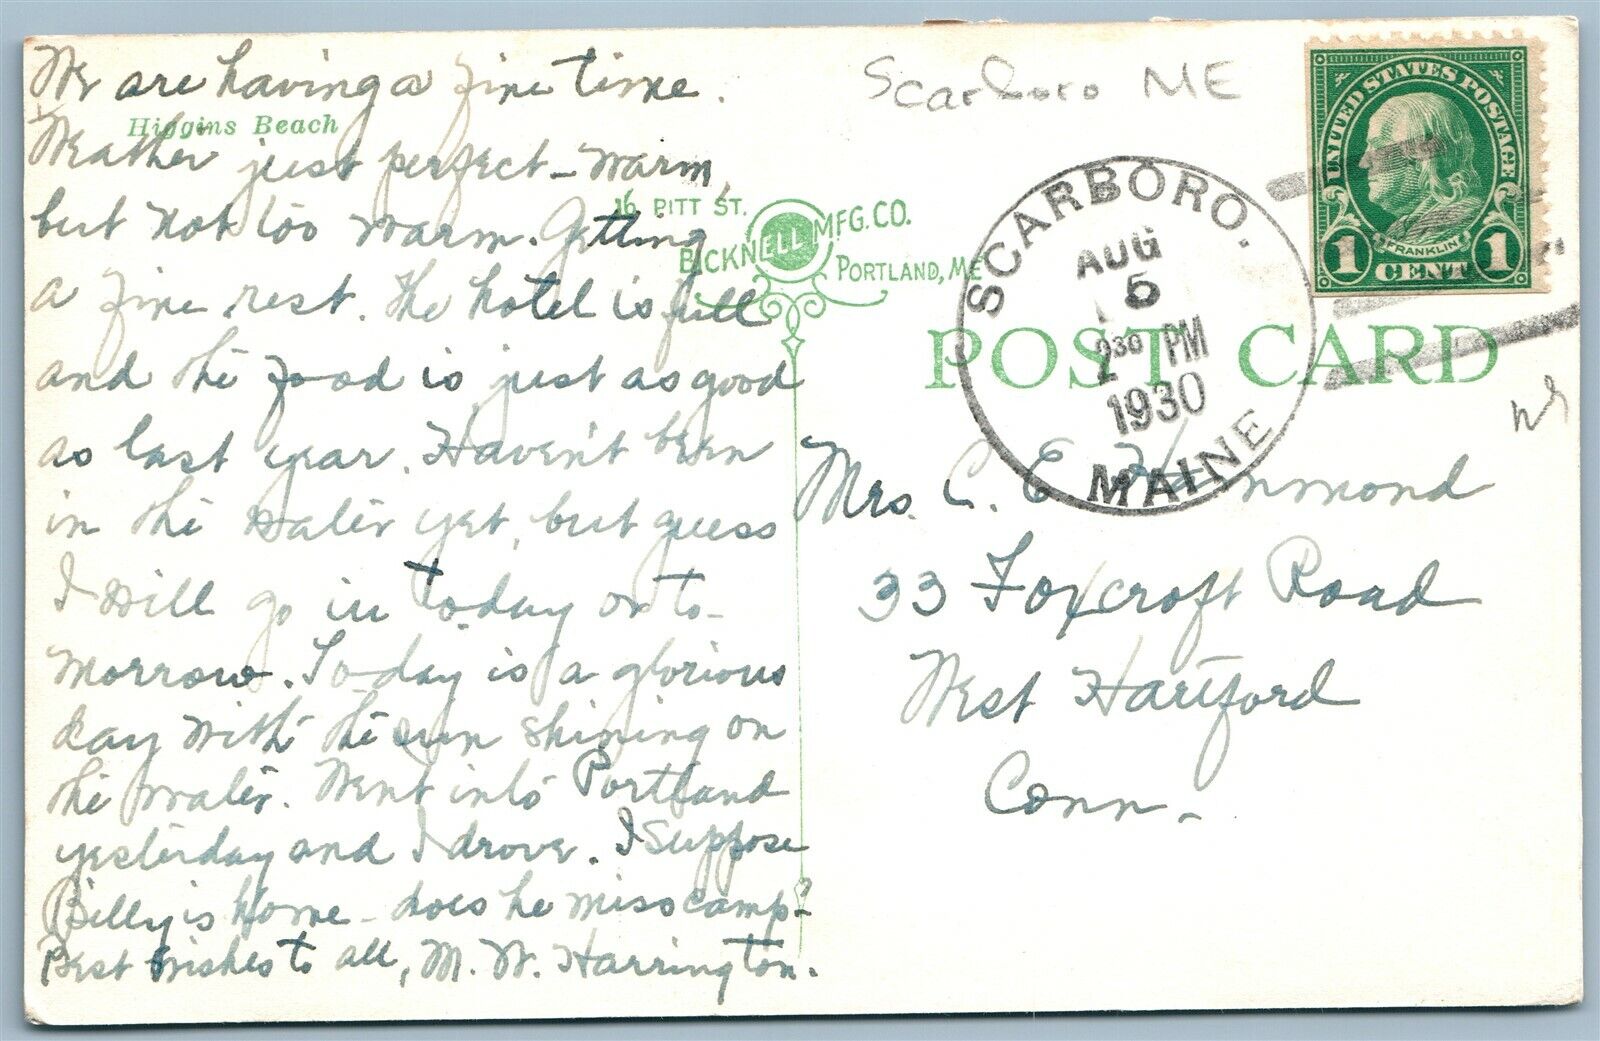 We are having a fine time.
Higgins Beach
Weather just perfect - warm,
but not too warm. Getting
a fine rest. The hotel is full
and the food is just as good
as last year. Haven't been
in the water yet, but guess
I will go in today or to-
morrow. Today is a glorious
day with the sun shining on
the water. Went into Portland
yesterday and I drove. I suppose
Billy is home - does he miss camp?
Best wishes to all, M. W. Harrington.
16 PITT ST.
BICKNELL MFG. CO.
PORTLAND, ME
Scarboro ME
SCARBORO.
AUG
5
2 30 PM
1930
MAINE
UNITED STATES POSTAGE
FRANKLIN
1 CENT 1
POST CARD
Mrs. C. E. Hammond
33 Foxcroft Road
West Hartford
Conn.